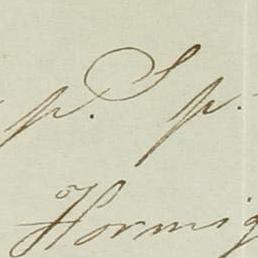 p. S p.
Hormig